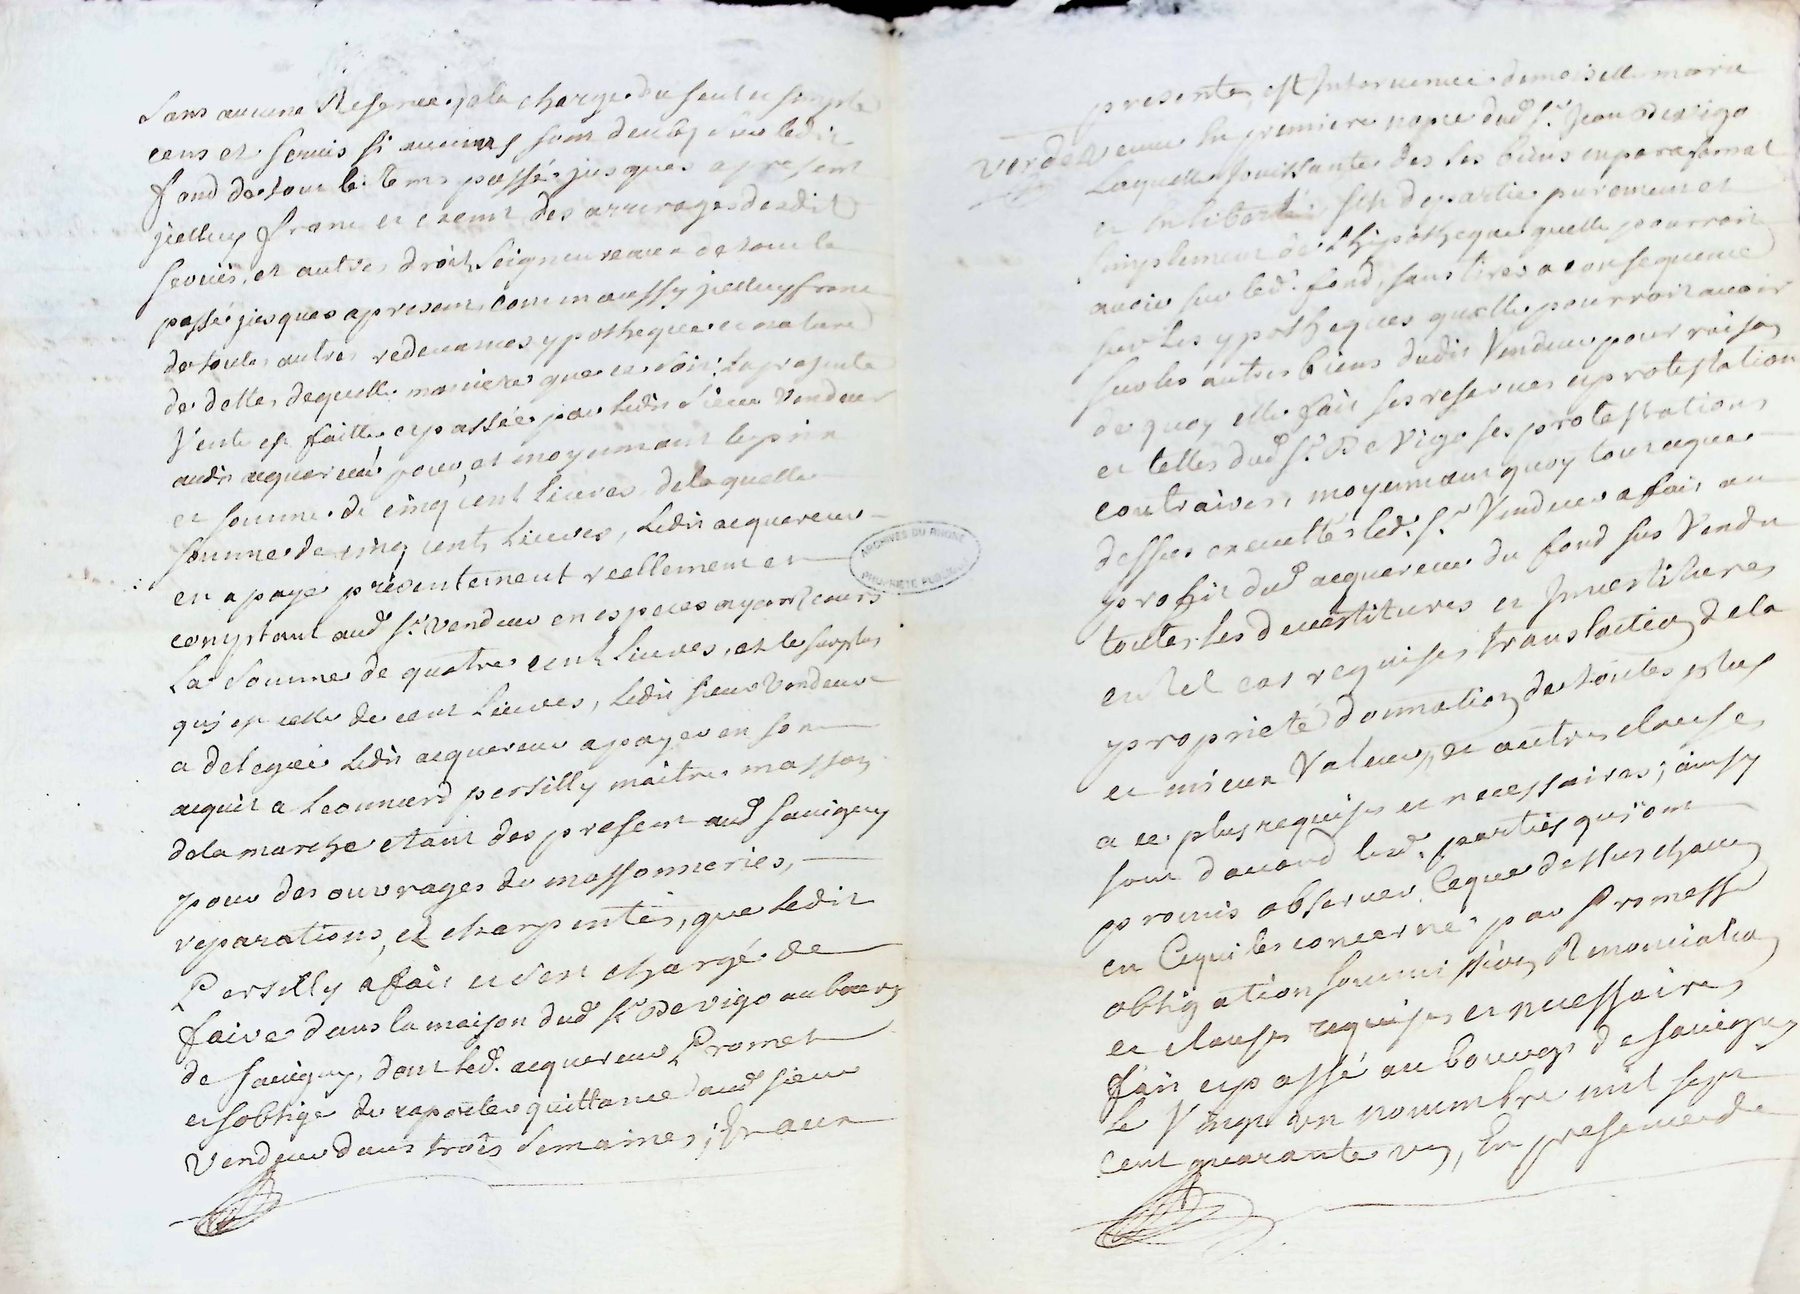 sans aucune Reserve, a la charge du seul et simple
cens et servis si aucuns sont deubs sur ledit
fond de tout le tems passé jusques a present
jcelluy franc et exemt des arrerages desdit
servis, et autres droits seigneureaux de tout le
passé jusques apresent comm aussy jcelluy franc
de toutes autres redevances ypotheque et nature
de dettes dequelle maniere que ce soit, La presente
Vente est faitte et passée par Ledit sieur Vendeur
audit acquereur, pour, et moyennant le prix
et somme de cinq cent Livres, de laquelle
somme de cinq cents Livres, Ledit acquereur
en a payé présentement reellement et
comptant aud. Sr. Vendeur en especes ayant cours
La somme de quatre cent Livres, et le surplus
qui est celle de cent Livres, Ledit sieur Vendeur
a delegué Ledit acquereur a payer en son
acquit a Leonnard persilly maitre masson
de la marche etant des present aud. Savigny
pour des ouvrages de massonneries,
reparations, et charpentes, que Ledit
Persilly a fait et s'est chargé de
faire dans la maison dud. Sr. De Vigo au bourg
de Savigny, dont Led. acquereur Promet
et soblige de raporter quittance aud. sieur
Vendeur dans trois semaines; Et aux
presente, est Intervenue demoiselle marie
Verdel
emme En premiere nopce dud. Sr. Jean De Vigo
Laquelle Jouissante des ses biens en parafernal
et En liberté, sest departie purement et
simplement de l'hipotheque quelle pourroit
avoir sur led. fond, sans tirer a consequence
sur les ypotheques quelle pourroit avoir
sur les autres biens dudit Vendeur pour raison
de quoy elle fait ses reserves et protestations
et celles dud. Sr. De Vigo ses protestations
contraires, moyennant quoy tout ce que
dessus executtés led. Sr. Vendeur a fait au
profit dud. acquereur du fond sus Vendu
toutes les devestitures et Jnvestitures
en tel cas requises, translation de la
proprieté donnation de toutes plus
et mieux Valeur, et autres clauses
a ce plus requises et necessaires; ainsy
sont d'acord lesd. parties qui ont
promis observer Ceque dessus chacun
en Cequi les concerne par Promesse
obligation soumission Renonciation
et clauses requises et necessaires
fait et passé au bourg de Savigny
Le Vingt un novembre mil sept
cent quarante un, En presence de
ARCHIVES DU RHONE
PROPRIETE PUBLIQUE